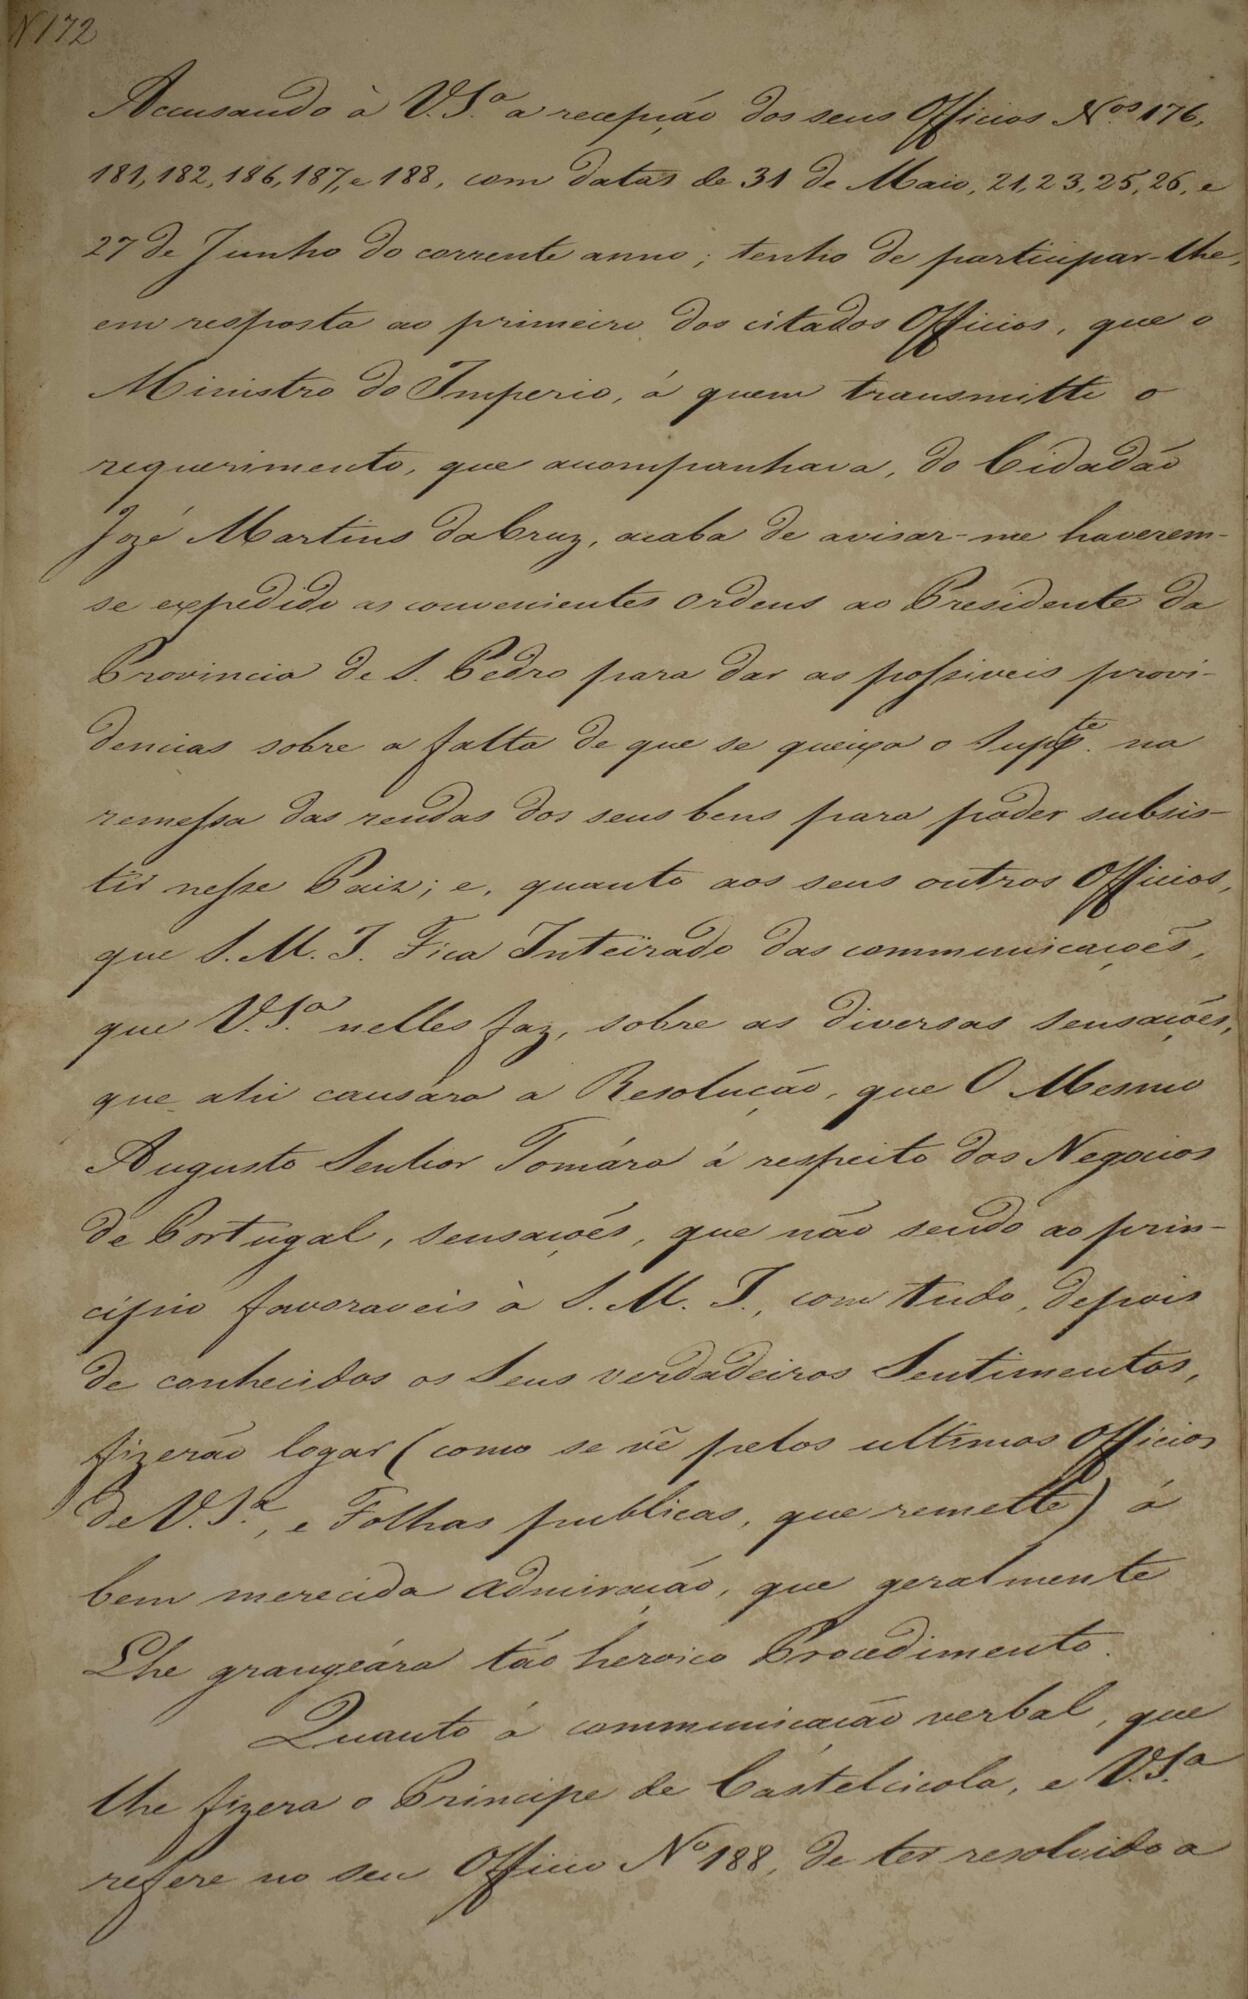 N 172
Accusando à V.S.ª a recepção dos seus Officios N.os 176,
181, 182, 186, 187, e 188, com datas de 31 de Maio, 21, 23, 25, 26, e
27 de Junho do corrente anno; tenho de participar-lhe,
em resposta ao primeiro dos citados Officios, que o
Ministro do Imperio, á quem transmitti o
requerimento, que acompanhava, do Cidadão
Jozé Martins da Cruz, acaba de avisar-me haverem-
se expedido as convenientes ordens ao Presidente da
Provincia de S. Pedro para dar as possiveis provi-
dencias sobre a falta de que se queixa o Supp.te na
remessa das rendas dos seus bens para poder subsis-
tir nesse Paiz; e, quanto aos seus outros Officios,
que S. M. I. Fica Inteirado das communicações,
que V.S.ª nelles faz, sobre as diversas sensações,
que ahi causára a Resolução, que O Mesmo
Augusto Senhor Tomára á respeito dos Negocios
de Portugal, sensações, que não sendo ao prin-
cipio favoraveis à S. M. I., com tudo, depois
de conhecidos os Seus verdadeiros Sentimentos,
fizerão logar (como se vê pelos ultimos Officios
de V.S.ª, e Folhas publicas, que remette) á
bem merecida admiração, que geralmente
Lhe grangeára tão heroico Procedimento.
Quanto á communicação verbal, que
lhe fizera o Principe de Castelcicola, e V.S.ª
refere no seu Officio Nº 188, de ter resolvido a